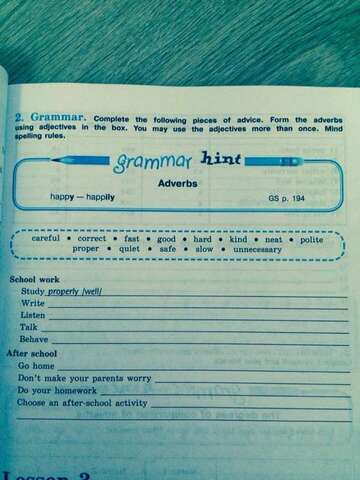 2. Grammar. Complete the following pieces of advice. Form the adverbs
using adjectives in the box. You may use the adjectives more than once. Mind
spelling rules.
grammar hint
Adverbs
happy — happily GS p. 194
careful • correct • fast • good • hard • kind • neat • polite
proper • quiet • safe • slow • unnecessary
School work
Study properly /well/
Write
Listen
Talk
Behave
After school
Go home
Don't make your parents worry
Do your homework
Choose an after-school activity
Lesson 3